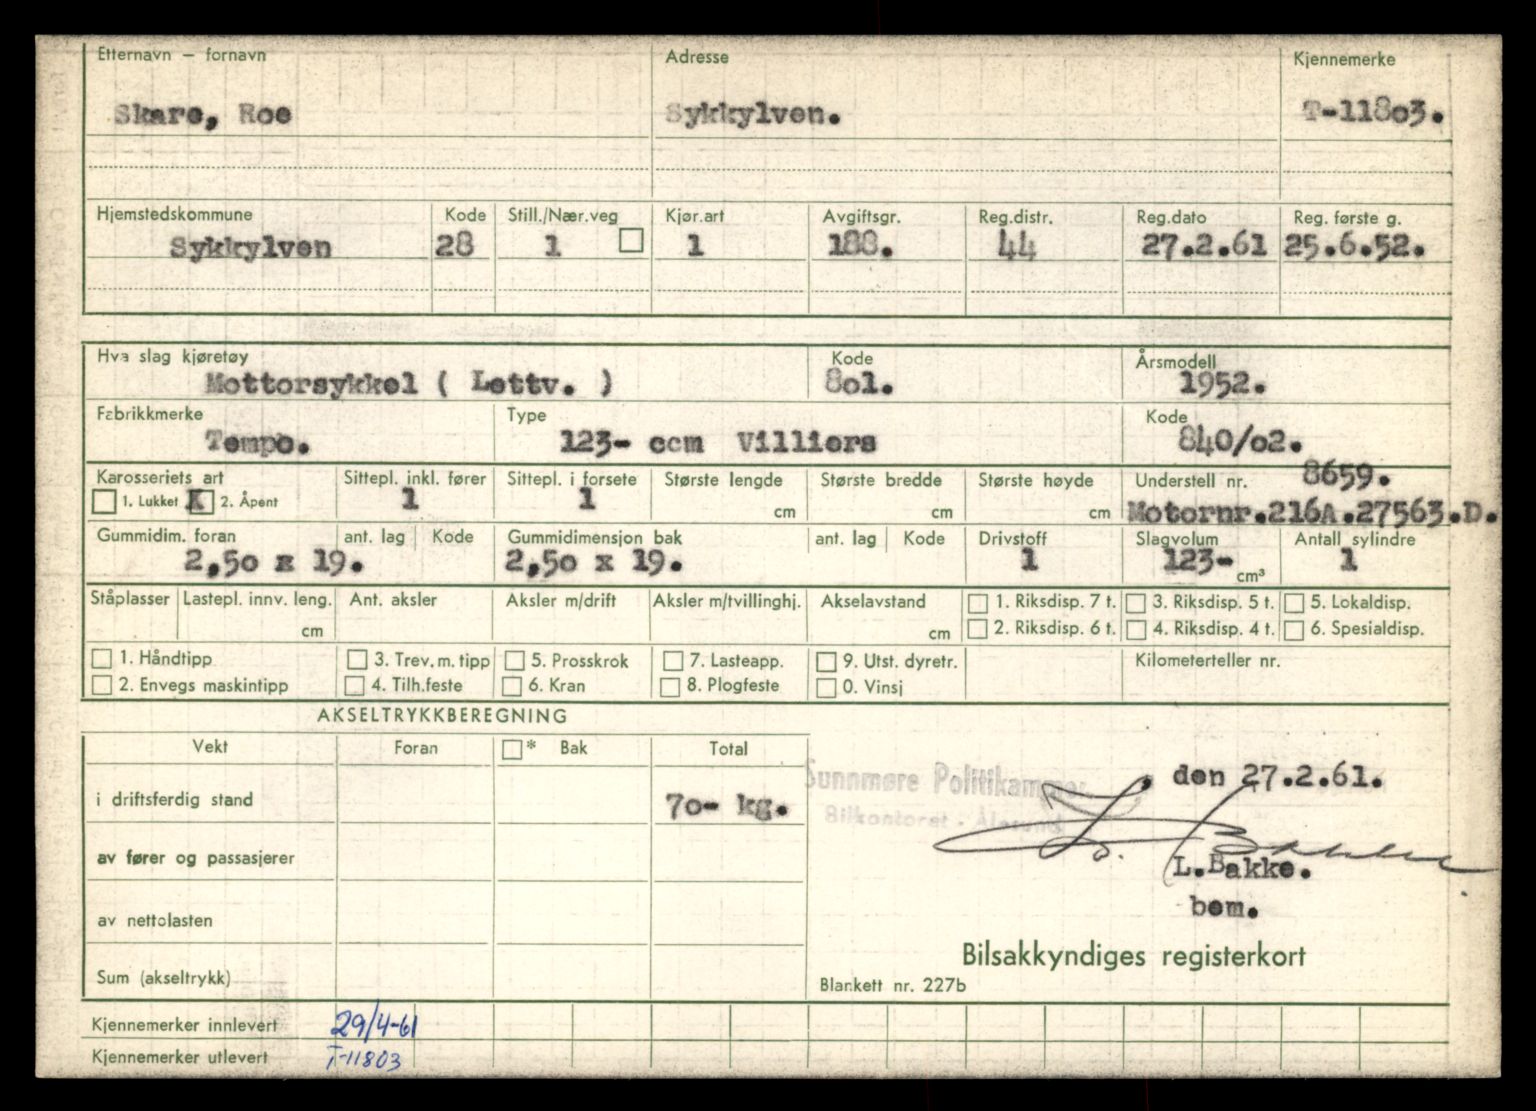 Etternavn – fornavn Adresse Kjennemerke
Skare, Roe Sykkylven. T-118o3.
Hjemstedskommune Kode Still./Nær.veg Kjør.art Avgiftsgr. Reg.distr. Reg.dato Reg. første g.
Sykkylven 28 1 1 188. 44 27.2.61 25.6.52.
Hva slag kjøretøy Kode Årsmodell
Mottorsykkel ( Lettv. ) 8o1. 1952.
Fabrikkmerke Type Kode
Tempo. 123- ccm Villiers 840/o2.
Karosseriets art Sittepl. inkl. fører Sittepl. i forsete Største lengde Største bredde Største høyde Understell nr. 8659.
1. Lukket X 2. Åpent 1 1 cm cm cm Motornr.216A.27563.D.
Gummidim. foran ant. lag Kode Gummidimensjon bak ant. lag Kode Drivstoff Slagvolum Antall sylindre
2,5o x 19. 2,5o x 19. 1 123- cm³ 1
Ståplasser Lastepl. innv. leng. Ant. aksler Aksler m/drift Aksler m/tvillinghj. Akselavstand 1. Riksdisp. 7 t. 3. Riksdisp. 5 t. 5. Lokaldisp.
cm cm 2. Riksdisp. 6 t. 4. Riksdisp. 4 t. 6. Spesialdisp.
1. Håndtipp 3. Trev. m. tipp 5. Prosskrok 7. Lasteapp. 9. Utst. dyretr. Kilometerteller nr.
2. Envegs maskintipp 4. Tilh.feste 6. Kran 8. Plogfeste 0. Vinsj
AKSELTRYKKBEREGNING
Vekt Foran * Bak Total
Sunnmøre Politikammer , den 27.2.61.
i driftsferdig stand 7o- kg.
Bilkontoret - Ålesund
av fører og passasjerer
L. Bakke
L.Bakke.
bem.
av nettolasten
Bilsakkyndiges registerkort
Sum (akseltrykk)
Blankett nr. 227b
Kjennemerker innlevert 29/4-61
Kjennemerker utlevert T-11803